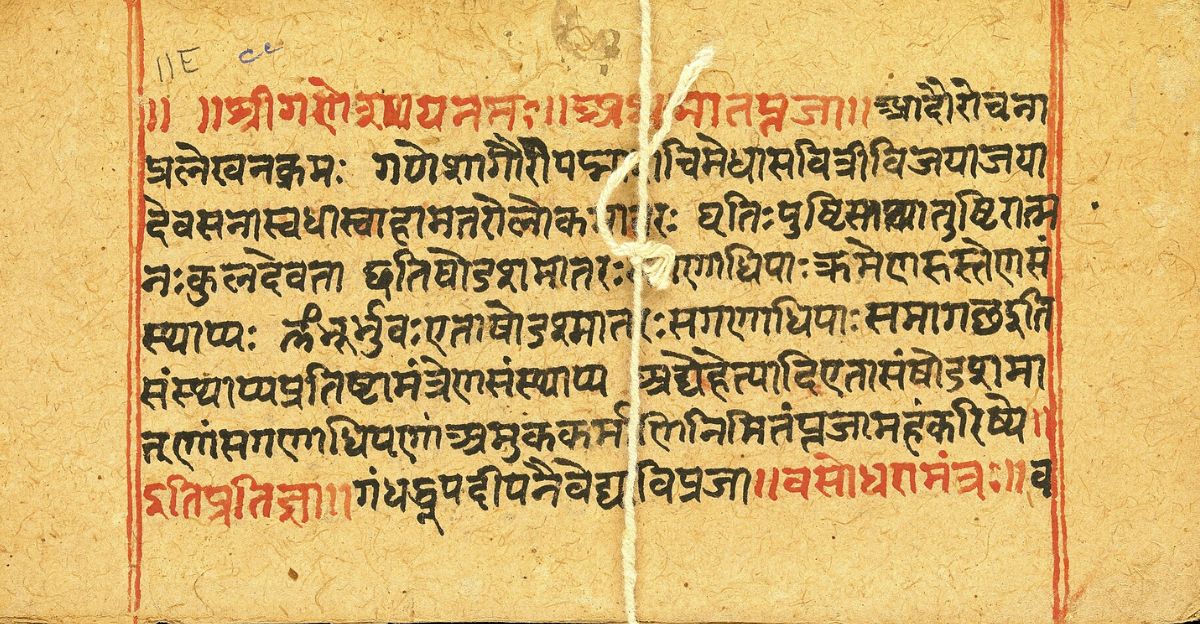 ॥ ॥श्रीगणेशायनमः॥ मातपूजा॥आदौरोचना
प्रलेखनक्रमः गणेशागौरीपद्मा चिमेधासवित्रीविजयाजया
देवसेनास्वधास्वाहामतरोलोक धृतिःपुष्टिस्तथातुष्टिरात्म
नःकुलदेवता षोडशमातरः णाधिपाःक्रमेणहस्तेणसं
स्थाप्यः भूर्भुवःएताषोडशमातरःसगणाधिपाःसमागछइति
संस्थाप्यप्रतिष्टामंत्रेणसंस्थाप्य अद्येहेत्यादिएतासंषोडशमा
तृणांसगणाधिपणांअमुककर्माणिनिमितंपूजामहंकरिष्ये॥
इतिप्रतिज्ञा॥गंधधूपदीपनैवेद्य विपूजा॥वसोधरामंत्रः॥व